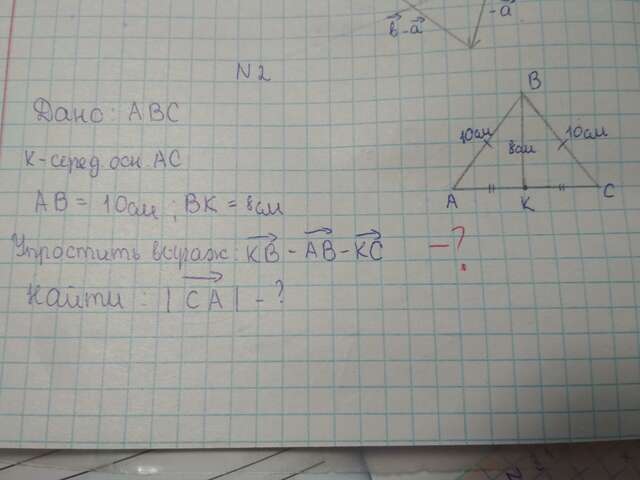 b-a
-a
N2
Дано: ABC
K-серед. осн. AC
AB = 10см; BK = 8см
Упростить выраж: KB - AB - KC -?
Найти: |CA| - ?
B
10см
8см
10см
A
K
C